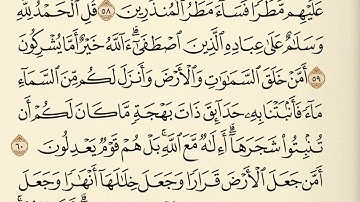 عَلَيْهِم مَّطَرًا فَسَآءَ مَطَرُ ٱلْمُنذَرِينَ ٥٨ قُلِ ٱلْحَمْدُ لِلَّهِ
وَسَلَٰمٌ عَلَىٰ عِبَادِهِ ٱلَّذِينَ ٱصْطَفَىٰٓ ءَآللَّهُ خَيْرٌ أَمَّا يُشْرِكُونَ
٥٩ أَمَّنْ خَلَقَ ٱلسَّمَٰوَٰتِ وَٱلْأَرْضَ وَأَنزَلَ لَكُم مِّنَ ٱلسَّمَآءِ
مَآءً فَأَنۢبَتْنَا بِهِۦ حَدَآئِقَ ذَاتَ بَهْجَةٍ مَّا كَانَ لَكُمْ أَن
تُنۢبِتُوا۟ شَجَرَهَآ أَءِلَٰهٌ مَّعَ ٱللَّهِ بَلْ هُمْ قَوْمٌ يَعْدِلُونَ ٦٠
أَمَّن جَعَلَ ٱلْأَرْضَ قَرَارًا وَجَعَلَ خِلَٰلَهَآ أَنْهَٰرًا وَجَعَلَ